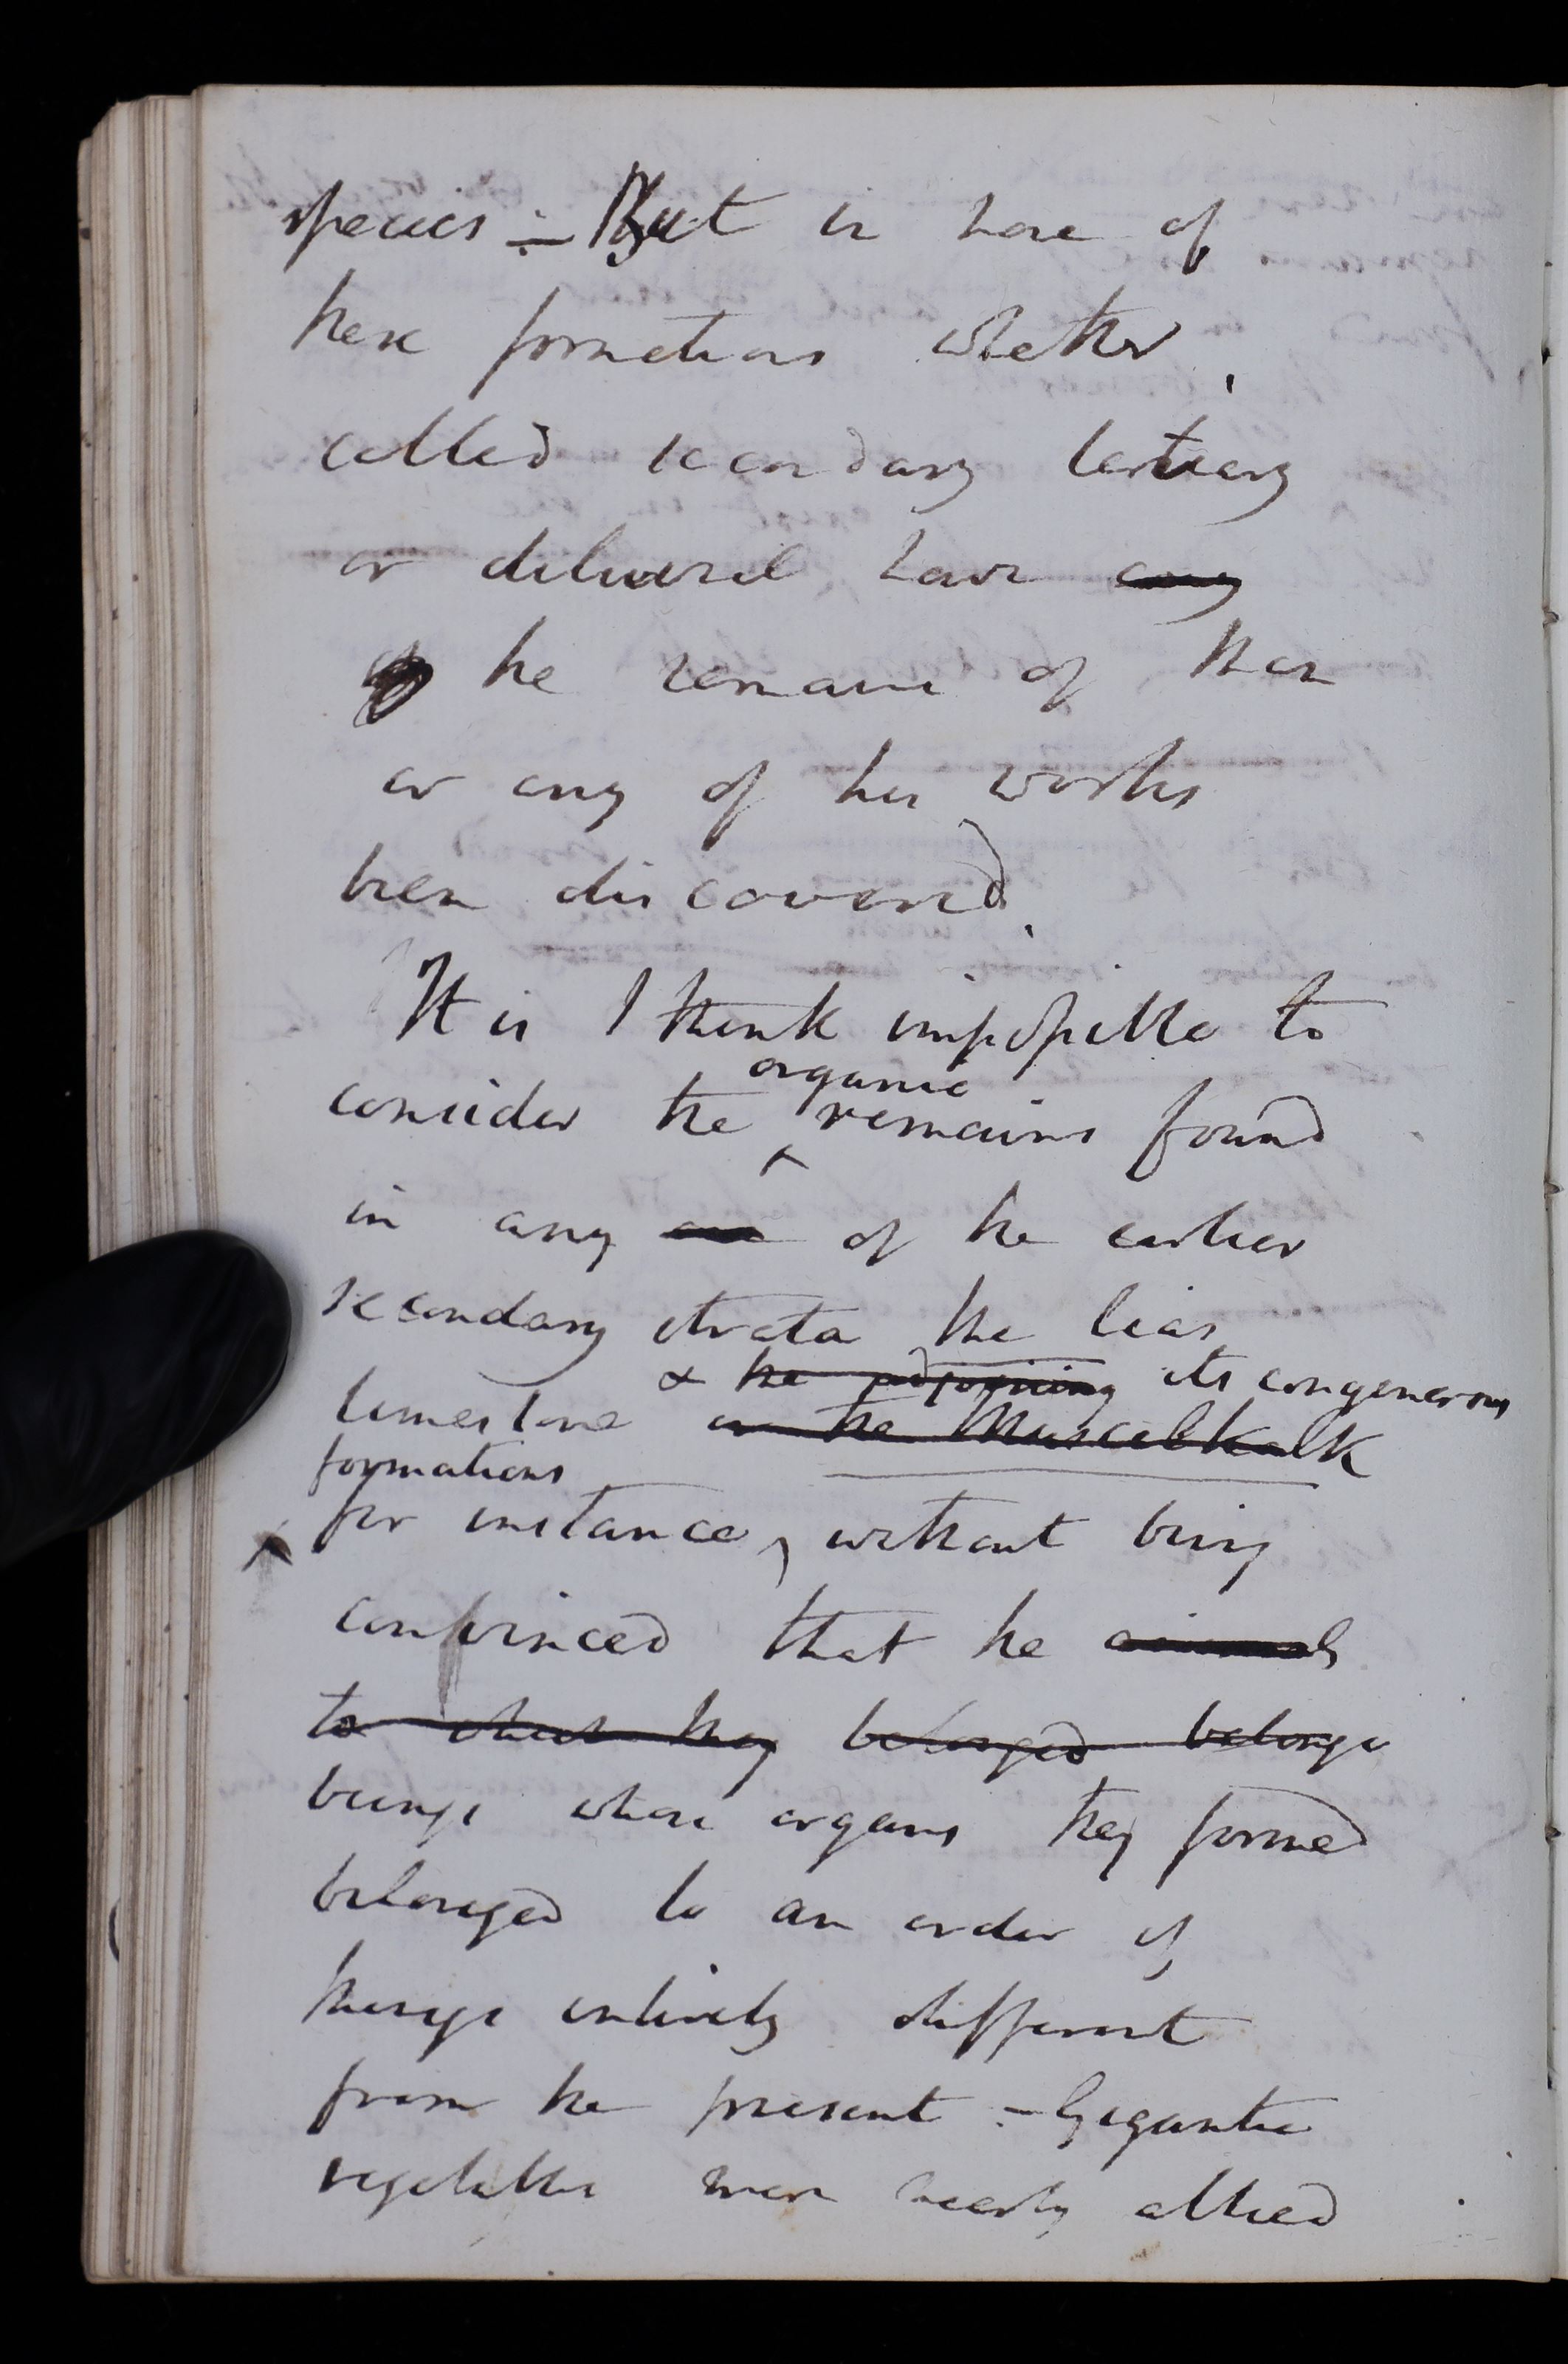 species :- But in none of
these formations whether
called secondary tertiary
or diluvial have any
the remains of Man
or any of his works
been discovered.
It is I think impossible to
organic
consider the ^ remains found
in any one of the earlier
secondary strata the lias
& the adjoining its congenerous
limestone or the Muscelkalk
formations
for instance, without being
convinced that the animals
to which they belonged belongs
beings whose organs they formed
belonged to an order of
things entirely different
from the present :- Gigantic
vegetables more nearly allied